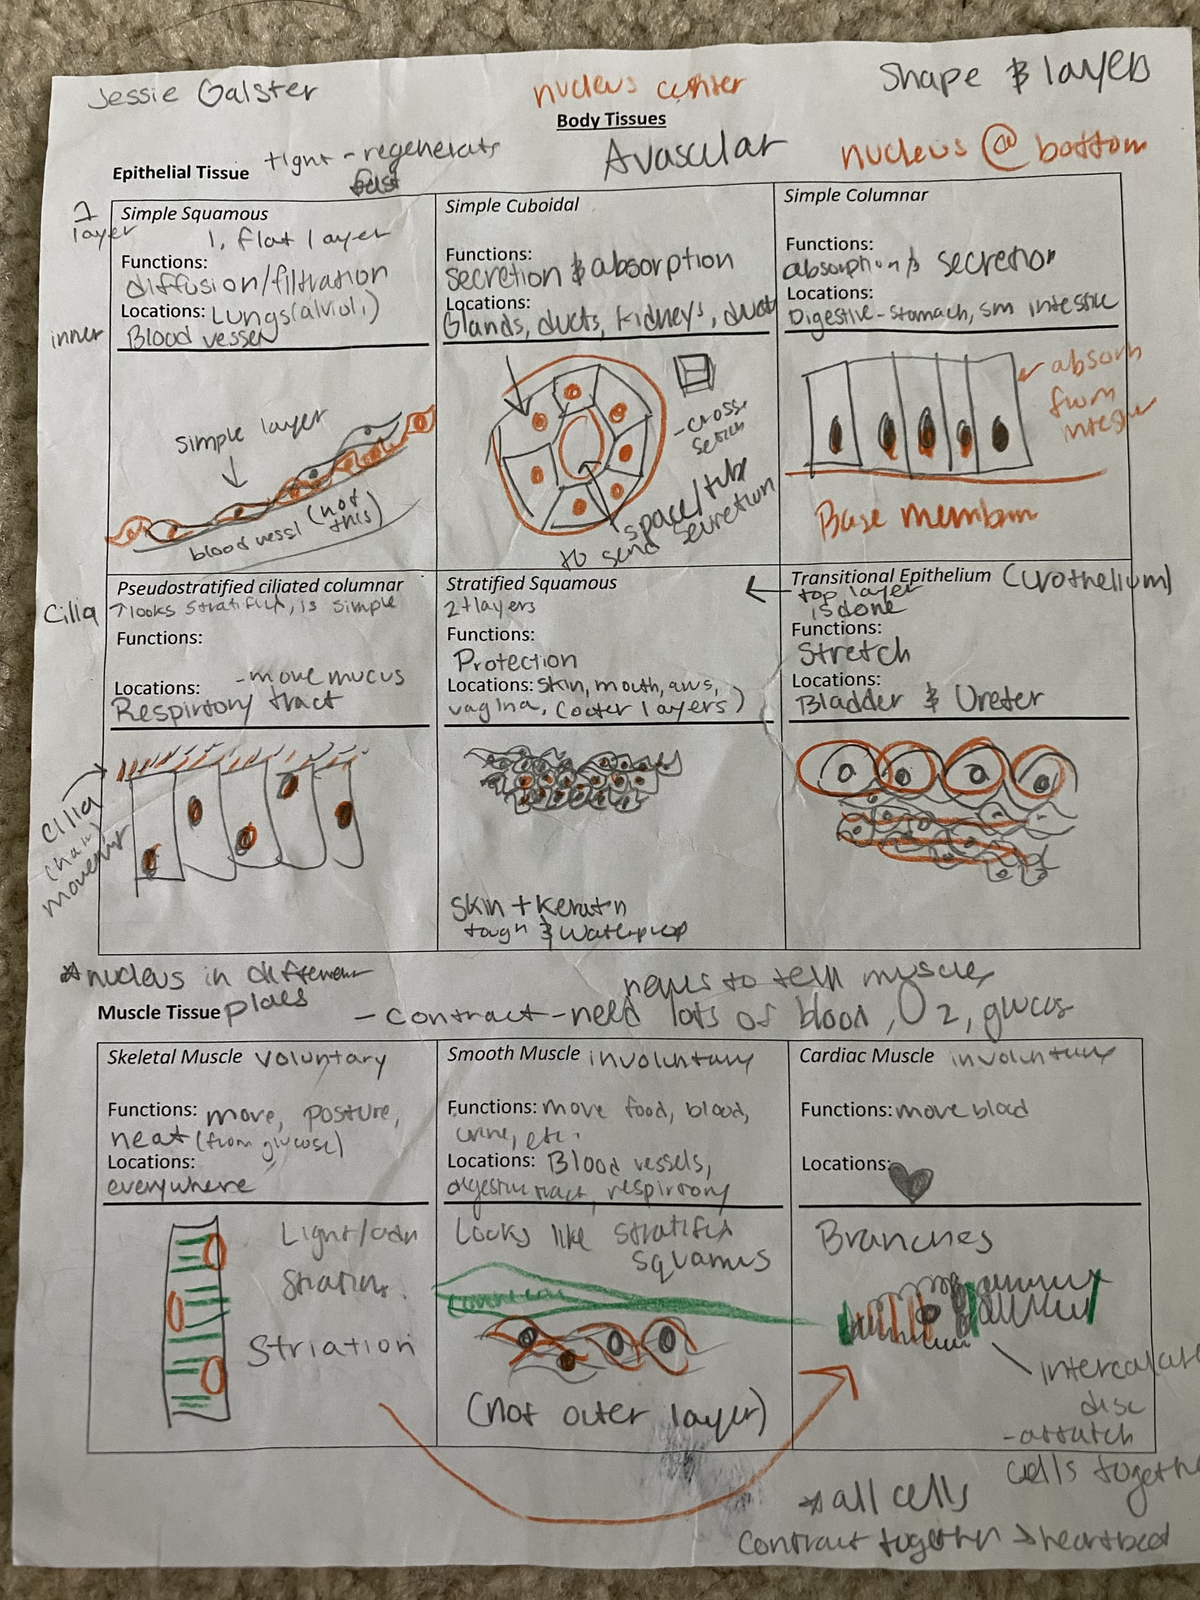 Jessie Galster
nucleus center
Shape & layers
Body Tissues
Epithelial Tissue tight - regenerats
fast
Avascular
nucleus @ bottom
1
layer
inner
Simple Squamous
1, flat layer
Functions:
diffusion/filtration
Locations: Lungs(alvioli)
Blood vessel
simple layer
blood vessl (not
this)
Simple Cuboidal
Functions:
secretion & absorption
Locations:
Glands, ducts, kidneys, duct
-cross
space/tube
to send secretion
Simple Columnar
Functions:
absorption & secretion
Locations:
Digestive-stomach, sm intestine
absorb
from
Base membran
Cilia
Pseudostratified ciliated columnar
↑looks stratified, is simple
Functions:
-move mucus
Locations:
Respirtory tract
cilia
movement
Stratified Squamous
2+layers
Functions:
Protection
Locations: skin, mouth, anus,
vagina, (outer layers)
skin + keratn
tough & waterproof
Transitional Epithelium (urothelium)
top layer
is done
Functions:
Stretch
Locations:
Bladder & Ureter
*nucleus in different
places
Muscle Tissue
nerves to tell muscles
- contract - need lots of blood, O2, glucos
Skeletal Muscle voluntary
Functions: move, posture,
heat (from glucose)
Locations:
everywhere
Light/dark
Striation
Smooth Muscle involuntary
Functions: move food, blood,
urine, etc.
Locations: Blood vessels,
digestive tract, respirtory
Looks like stratified
squamus
(not outer layer)
Cardiac Muscle involuntary
Functions: move blood
Locations:
Branches
intercalate
disc
-attatch
cells together
*all cells
contract together → heartbeat